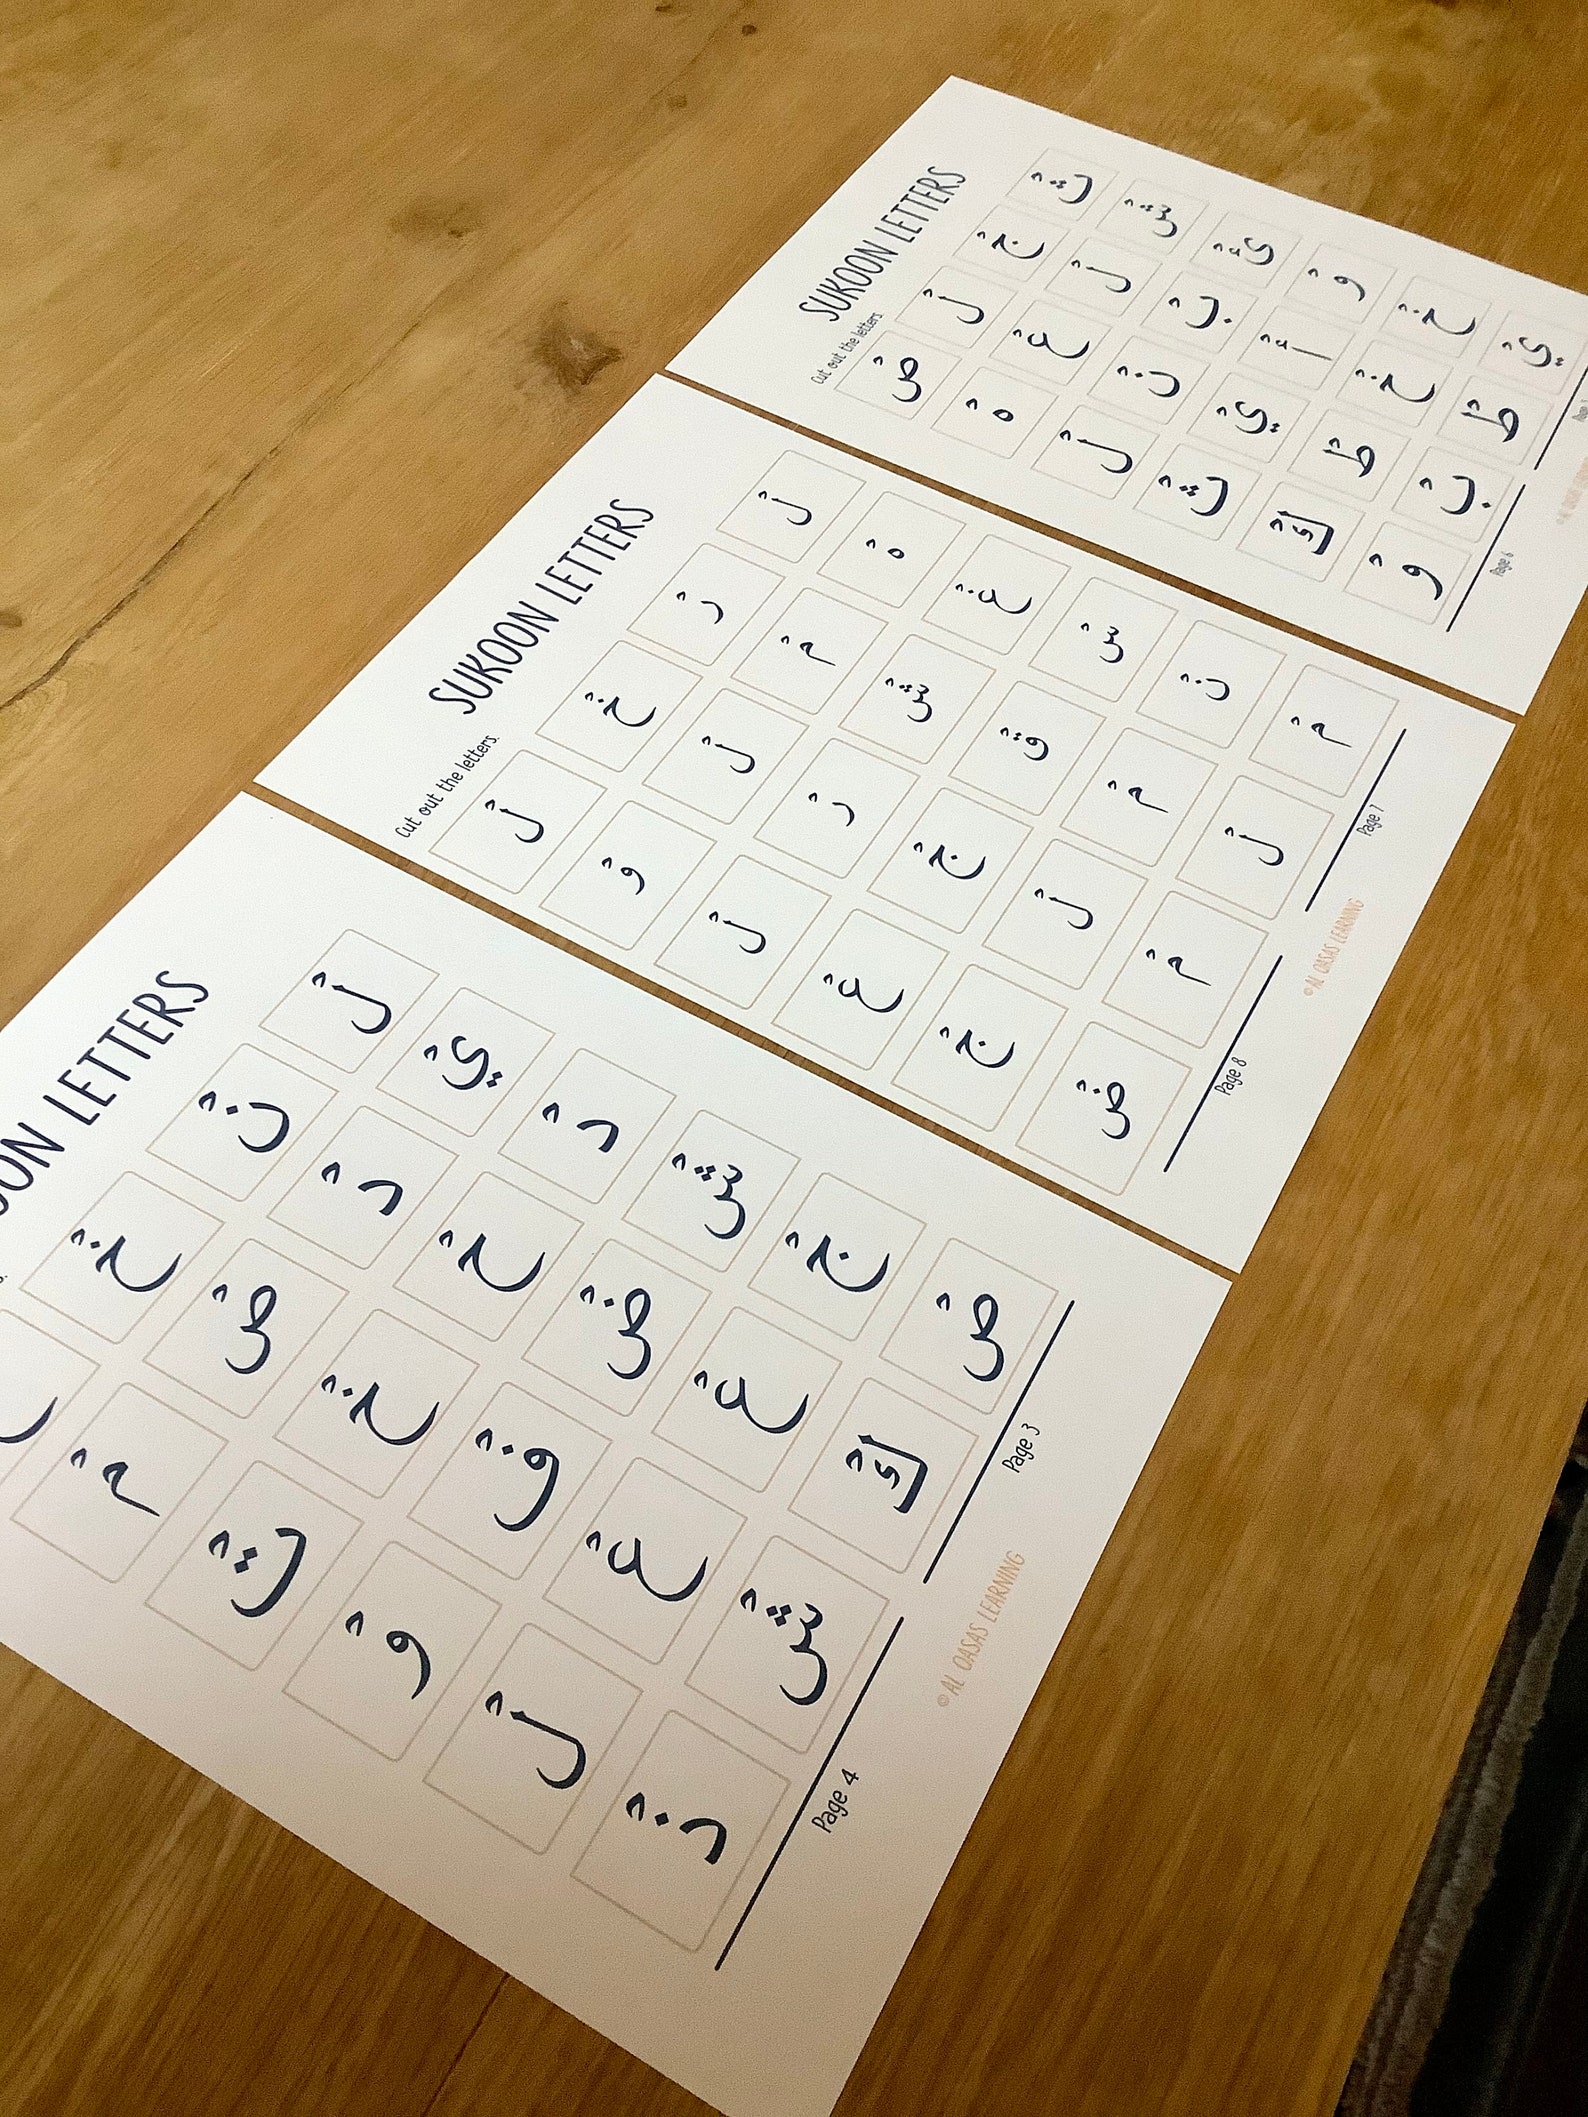 SUKOON LETTERS
Cut out the letters.
تْ جْ لْ صْ
شْ لْ عْ هْ
ئْ بْ نْ لْ
وْ أْ يْ ثْ
خْ خْ طْ كْ
يْ طْ بْ وْ
Page 6
SUKOON LETTERS
Cut out the letters.
لْ رْ خْ لْ
هْ مْ لْ وْ
غْ شْ رْ لْ
سْ قْ جْ عْ
نْ مْ لْ جْ
مْ لْ مْ ضْ
Page 8 Page 7
©AL QASAS LEARNING
LETTERS
لْ نْ خْ
يْ دْ صْ مْ
دْ حْ خْ تْ
شْ ضْ فْ وْ
جْ عْ عْ لْ
صْ كْ شْ ذْ
Page 4 Page 3
©AL QASAS LEARNING